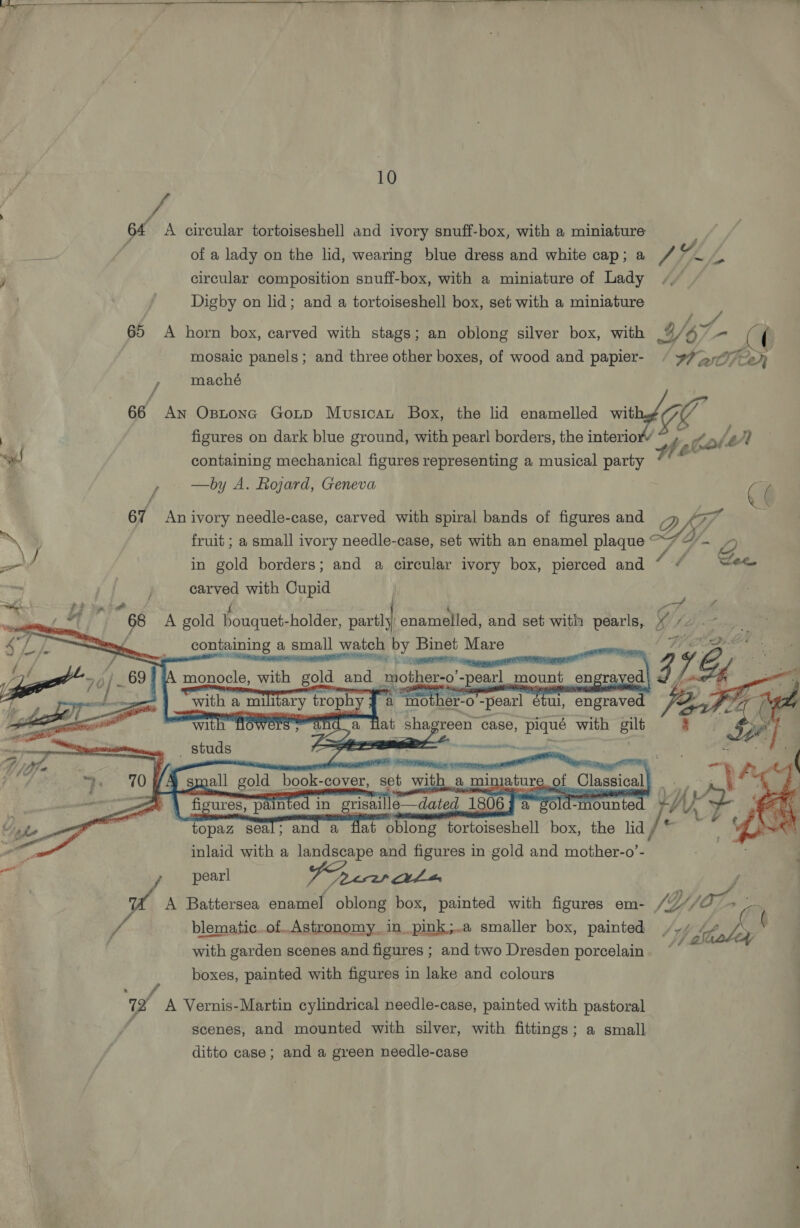 10
64 A circular tortoiseshell and ivory snuff-box, with a miniature
of a lady on the lid, wearing blue dress and white cap; a
circular composition snuff-box, with a miniature of Lady
Digby on lid; and a tortoiseshell box, set with a miniature
65 A horn box, carved with stags; an oblong silver box, with
mosaic panels; and three other boxes, of wood and papier-
maché
66 An Oblong Gold Musical Box, the lid enamelled with
figures on dark blue ground, with pearl borders, the interior
containing mechanical figures representing a musical party
—by A. Rojard, Geneva
67 An ivory needle-case, carved with spiral bands of figures and
fruit; a small ivory needle-case, set with an enamel plaque
in gold borders; and a circular ivory box, pierced and
carved with Cupid
68 A gold bouquet-holder, partly enamelled, and set with pearls,
containing a small watch by Binet Mare
69 A monocle, with gold and mother-o'-pearl mount engraved
with a military trophy; a mother-o'-pearl étui, engraved
with flowers; and a flat shagreen case, piqué with gilt
studs
70 A small gold book-cover, set with a miniature of Classical
figures, painted in grisaille—dated 1806; a gold-mounted
topaz seal; and a flat oblong tortoiseshell box, the lid
inlaid with a landscape and figures in gold and mother-o'-
pearl
A Battersea enamel oblong box, painted with figures em-
blematic of Astronomy in pink; a smaller box, painted
with garden scenes and figures; and two Dresden porcelain
boxes, painted with figures in lake and colours
72 A Vernis-Martin cylindrical needle-case, painted with pastoral
scenes, and mounted with silver, with fittings; a small
ditto case; and a green needle-case